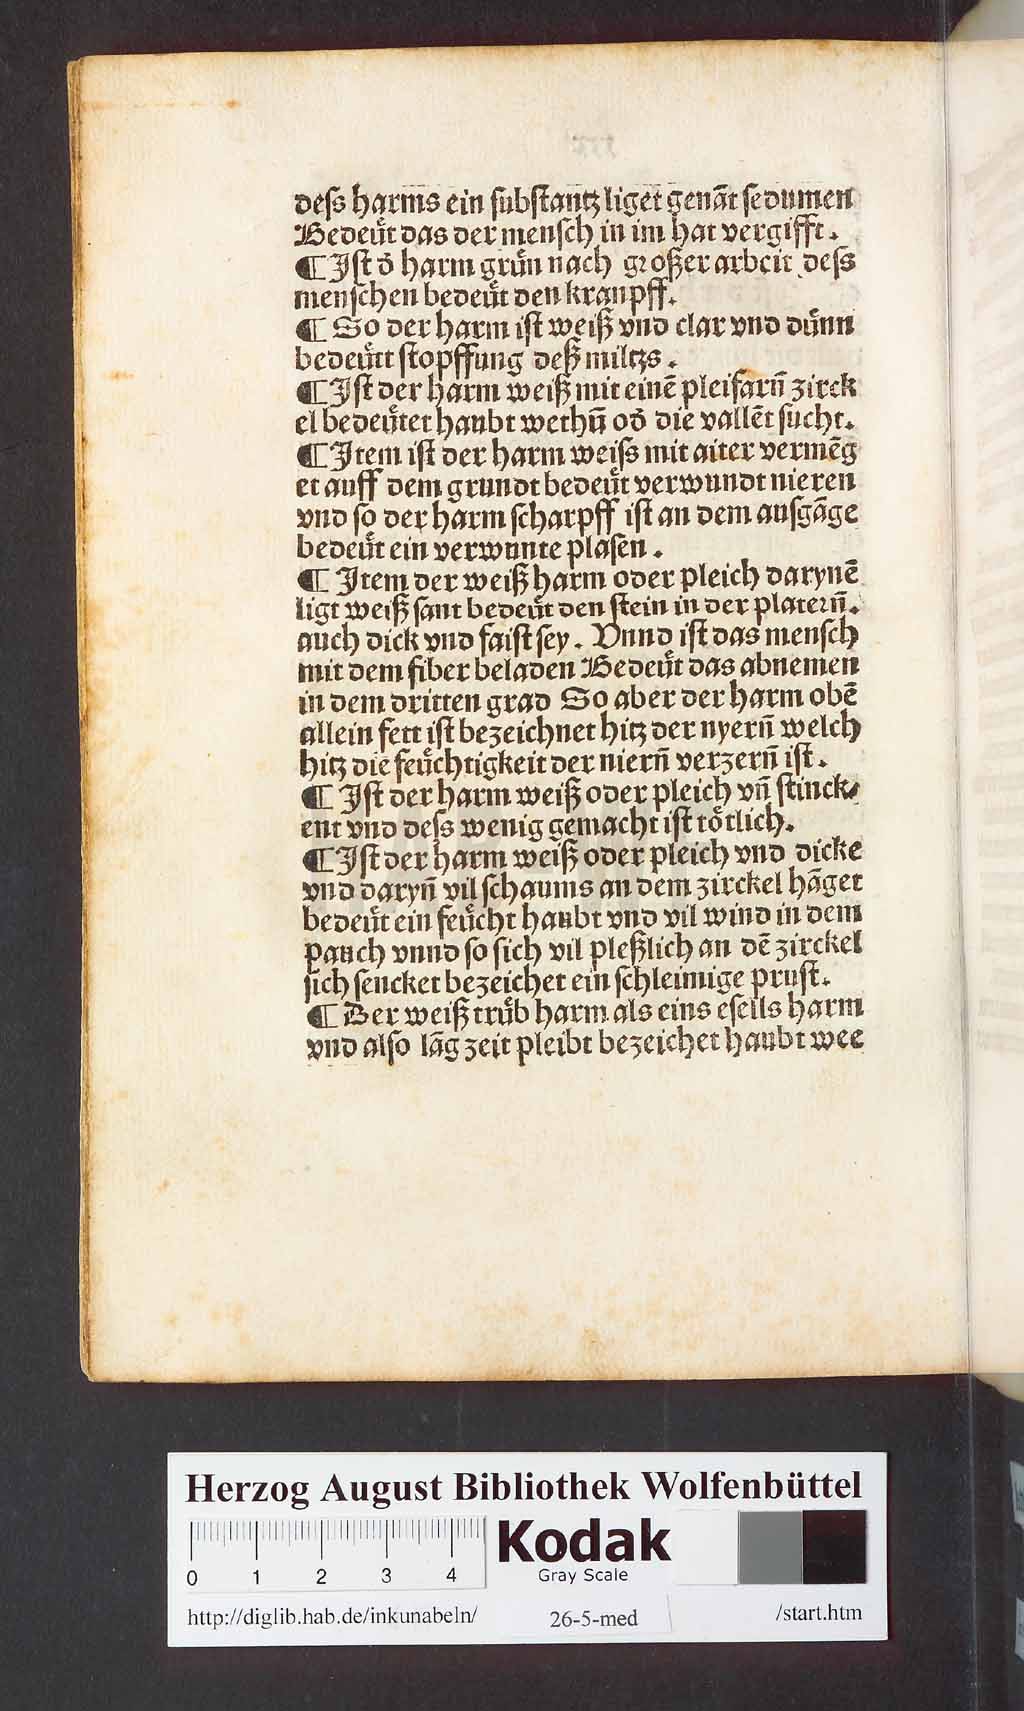 deſs harms ein ſubſtantz liget genāt ſedumen
Bedeuͤt das der menſch in im hat vergifft.
¶ Iſt đ harm gruͤn nach groſzer arbeit deſs
menſchen bedeuͤt den kranpff.
¶ So der harm iſt weiß vnd clar vnd duͤnn
bedeuͤtt ſtopffung deß miltzs.
¶ Iſt der harm weiß mit einē pleifarn̄ zirck
el bedeuͤtet haubt wethū ođ die vallēt ſucht.
¶ Item iſt der harm weiſs mit aiter vermēg
et auff dem grundt bedeuͤt verwundt nieren
vnd ſo der harm ſcharpff iſt an dem auſgāge
bedeuͤt ein verwunte plaſen.
¶ Item der weiß harm oder pleich darynē
ligt weiß ſant bedeuͤt den ſtein in der platern̄.
auch dick vnd faiſt ſey. Vnnd iſt das menſch
mit dem fiber beladen Bedeuͤt das abnemen
in dem dritten grad So aber der harm obē
allein fett iſt bezeichnet hitz der nyern̄ welch
hitz die feuͤchtigkeit der niern̄ verzern̄ iſt.
¶ Iſt der harm weiß oder pleich vn̄ ſtinck⸗
ent vnd deſs wenig gemacht iſt toͤtlich.
¶ Iſt der harm weiß oder pleich vnd dicke
vnd daryn̄ vil ſchaums an dem zirckel hāget
bedeuͤt ein feuͤcht haubt vnd vil wind in dem
pauch vnnd ſo ſich vil pleßlich an dē zirckel
ſich ſencket bezeichet ein ſchleimige pruſt.
¶ Der weiß truͤb harm als eins eſells harm
vnd alſo lāg zeit pleibt bezeichet haubt wee
Herzog August Bibliothek Wolfenbüttel
0 1 2 3 4
Kodak
Gray Scale
http://diglib.hab.de/inkunabeln/ 26-5-med /start.htm